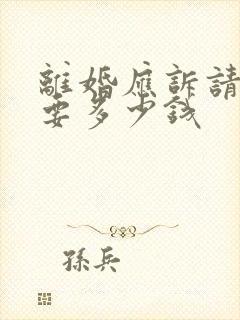 離婚應訴請
要多少錢
孫兵